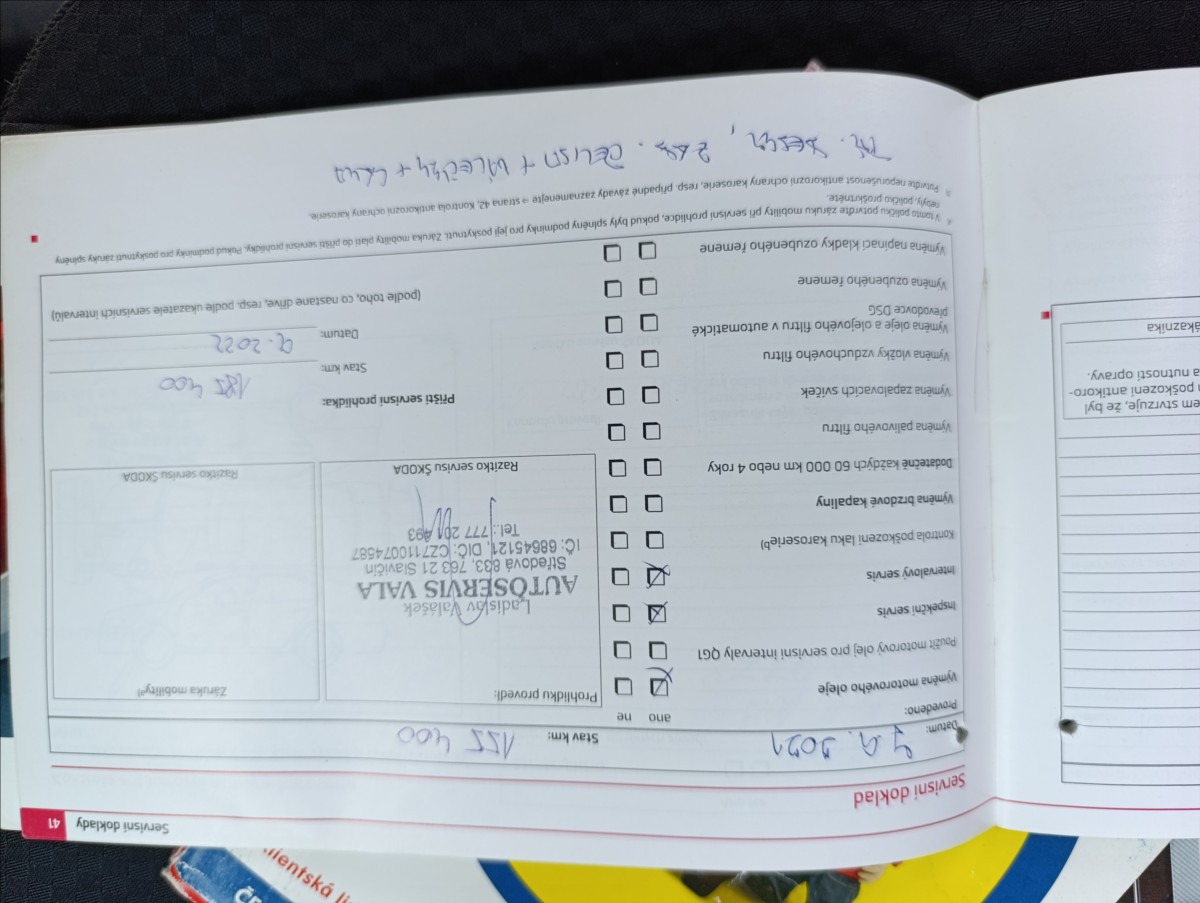 Servisní doklady 41
Servisní doklad
Datum: 7.9.2021 Stav km: 155 400
Provedeno: ano ne
Výměna motorového oleje
Použit motorový olej pro servisní intervaly QG1
Inspekční servis
Intervalový servis
Kontrola poškození laku karoserie b)
Výměna brzdové kapaliny
Dodatečně každých 60 000 km nebo 4 roky
Výměna palivového filtru
Výměna zapalovacích svíček
Výměna vložky vzduchového filtru
Výměna oleje a olejového filtru v automatické
převodovce DSG
Výměna ozubeného řemene
Výměna napínací kladky ozubeného řemene
Prohlídku provedl:
Ladislav Valášek
AUTOSERVIS VALA
Středová 833, 763 21 Slavičín
IČ: 68645121, DIČ: CZ7110074587
Tel.: 777 201 493
Razítko servisu ŠKODA
Záruka mobility a)
Razítko servisu ŠKODA
Příští servisní prohlídka:
Stav km: 185 400
Datum: 9. 2022
(podle toho, co nastane dříve, resp. podle ukazatele servisních intervalů)
a) V tomto políčku potvrďte záruku mobility při servisní prohlídce, pokud byly splněny podmínky pro její poskytnutí. Záruka mobility platí do příští servisní prohlídky. Pokud podmínky pro poskytnutí záruky splněny
nebyly, políčko proškrtněte.
b) Potvrďte neporušenost antikorozní ochrany karoserie, resp. případné závady zaznamenejte ⇒ strana 42, Kontrola antikorozní ochrany karoserie.
ČELISTI + VÁLEČKY + LANA
em stvrzuje, že byl
poškození antikoro-
a nutnosti opravy.
ákazníka
lientská li